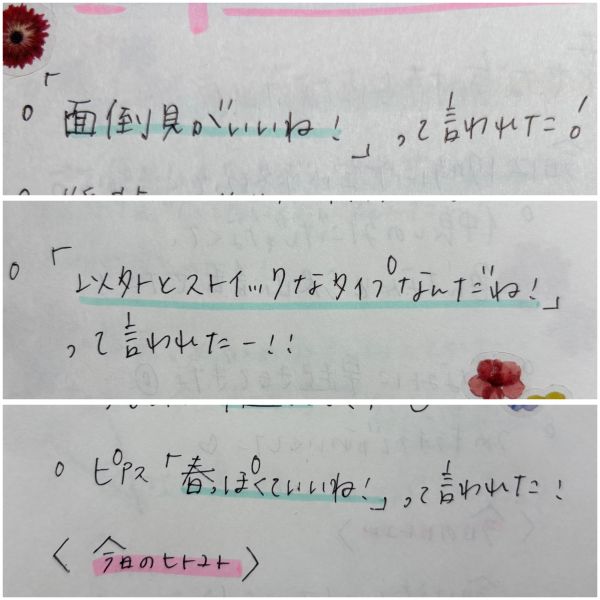 。「面倒見がいいね!」って言われた!
。「以外とストイックなタイプなんだね!」
って言われたー!!
。ピアス「春っぽくていいね!」って言われた!
〈今日のヒトコト〉